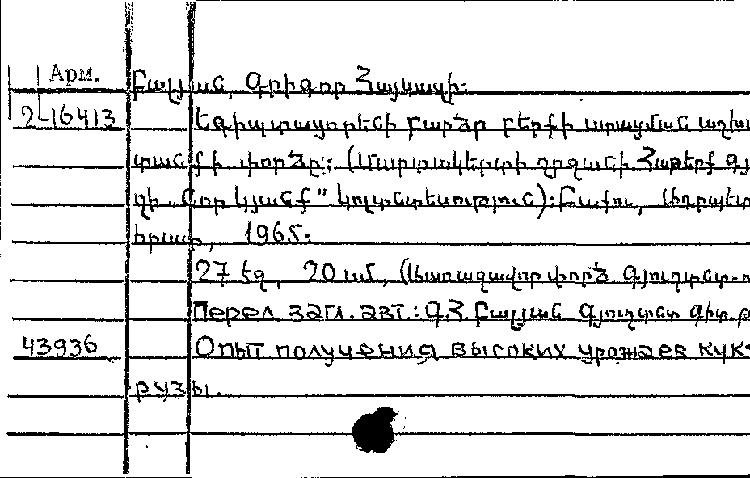 Арм.
Բալյան, Գրիգոր Հայկազի:
2-16413 Եգիպտացորենի բարձր բերքի ստացման աշխա
տանքի փորձը: (Մարտակերտի շրջանի Հաթերք գյու
ղի „Նոր կյանք" կոլտնտեսություն): Բաքու,
հրատ, 1965:
27 էջ, 20 սմ, (Առաջավոր փորձ գյուղտնտ.
Перел загл. авт.: Գ.Հ. Բալյան գյուղտնտ գիտ.
43936 Опыт получения высоких урожаев куку
рузы.